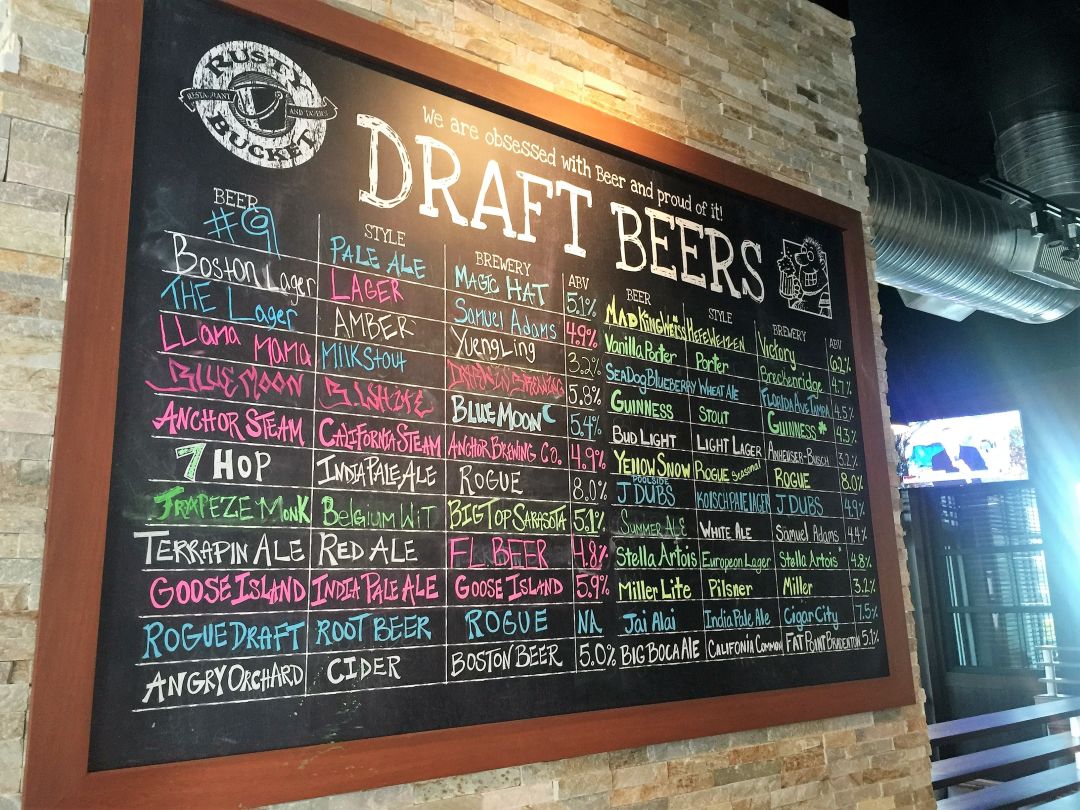 RUSTY
RESTAURANT AND TAVERN
BUCKET
We are obsessed with Beer and proud of it!
DRAFT BEERS
BEER STYLE BREWERY ABV
#9 PALE ALE MAGIC HAT 5.1%
Boston Lager LAGER Samuel Adams 4.9%
THE Lager AMBER Yuengling 3.2%
LLama Mama MILK STOUT DARWIN BREWING 5.8%
BLUE MOON B. WHITE BLUE MOON 5.4%
ANCHOR STEAM CALIFORNIA STEAM ANCHOR BREWING CO. 4.9%
7 HOP INDIA PALE ALE ROGUE 8.0%
TRAPEZE MONK BELGIUM WIT BIG TOP SARASOTA 5.1%
TERRAPIN ALE RED ALE FL. BEER 4.8%
GOOSE ISLAND INDIA PALE ALE GOOSE ISLAND 5.9%
ROGUE DRAFT ROOT BEER ROGUE NA
ANGRY ORCHARD CIDER BOSTON BEER 5.0%
BEER STYLE BREWERY ABV
MAD KING WEISS HEFEWEIZEN Victory 6.2%
Vanilla Porter Porter Breckenridge 4.7%
SEA DOG BLUEBERRY WHEAT ALE FLORIDA AVE TAMPA 4.5%
GUINNESS STOUT GUINNESS 4.3%
BUD LIGHT LIGHT LAGER ANHEUSER-BUSCH 3.2%
YELLOW SNOW ROGUE Seasonal ROGUE 8.0%
POOLSIDE
J DUBS KOLSCH PALE LAGER J DUBS 4.9%
SUMMER ALE WHITE ALE Samuel Adams 4.4%
Stella Artois European Lager Stella Artois 4.8%
Miller Lite Pilsner Miller 3.2%
Jai Alai India Pale Ale Cigar City 7.5%
BIG BOCA ALE CALIFONIA COMMON FAT POINT BRADENTON 5.1%